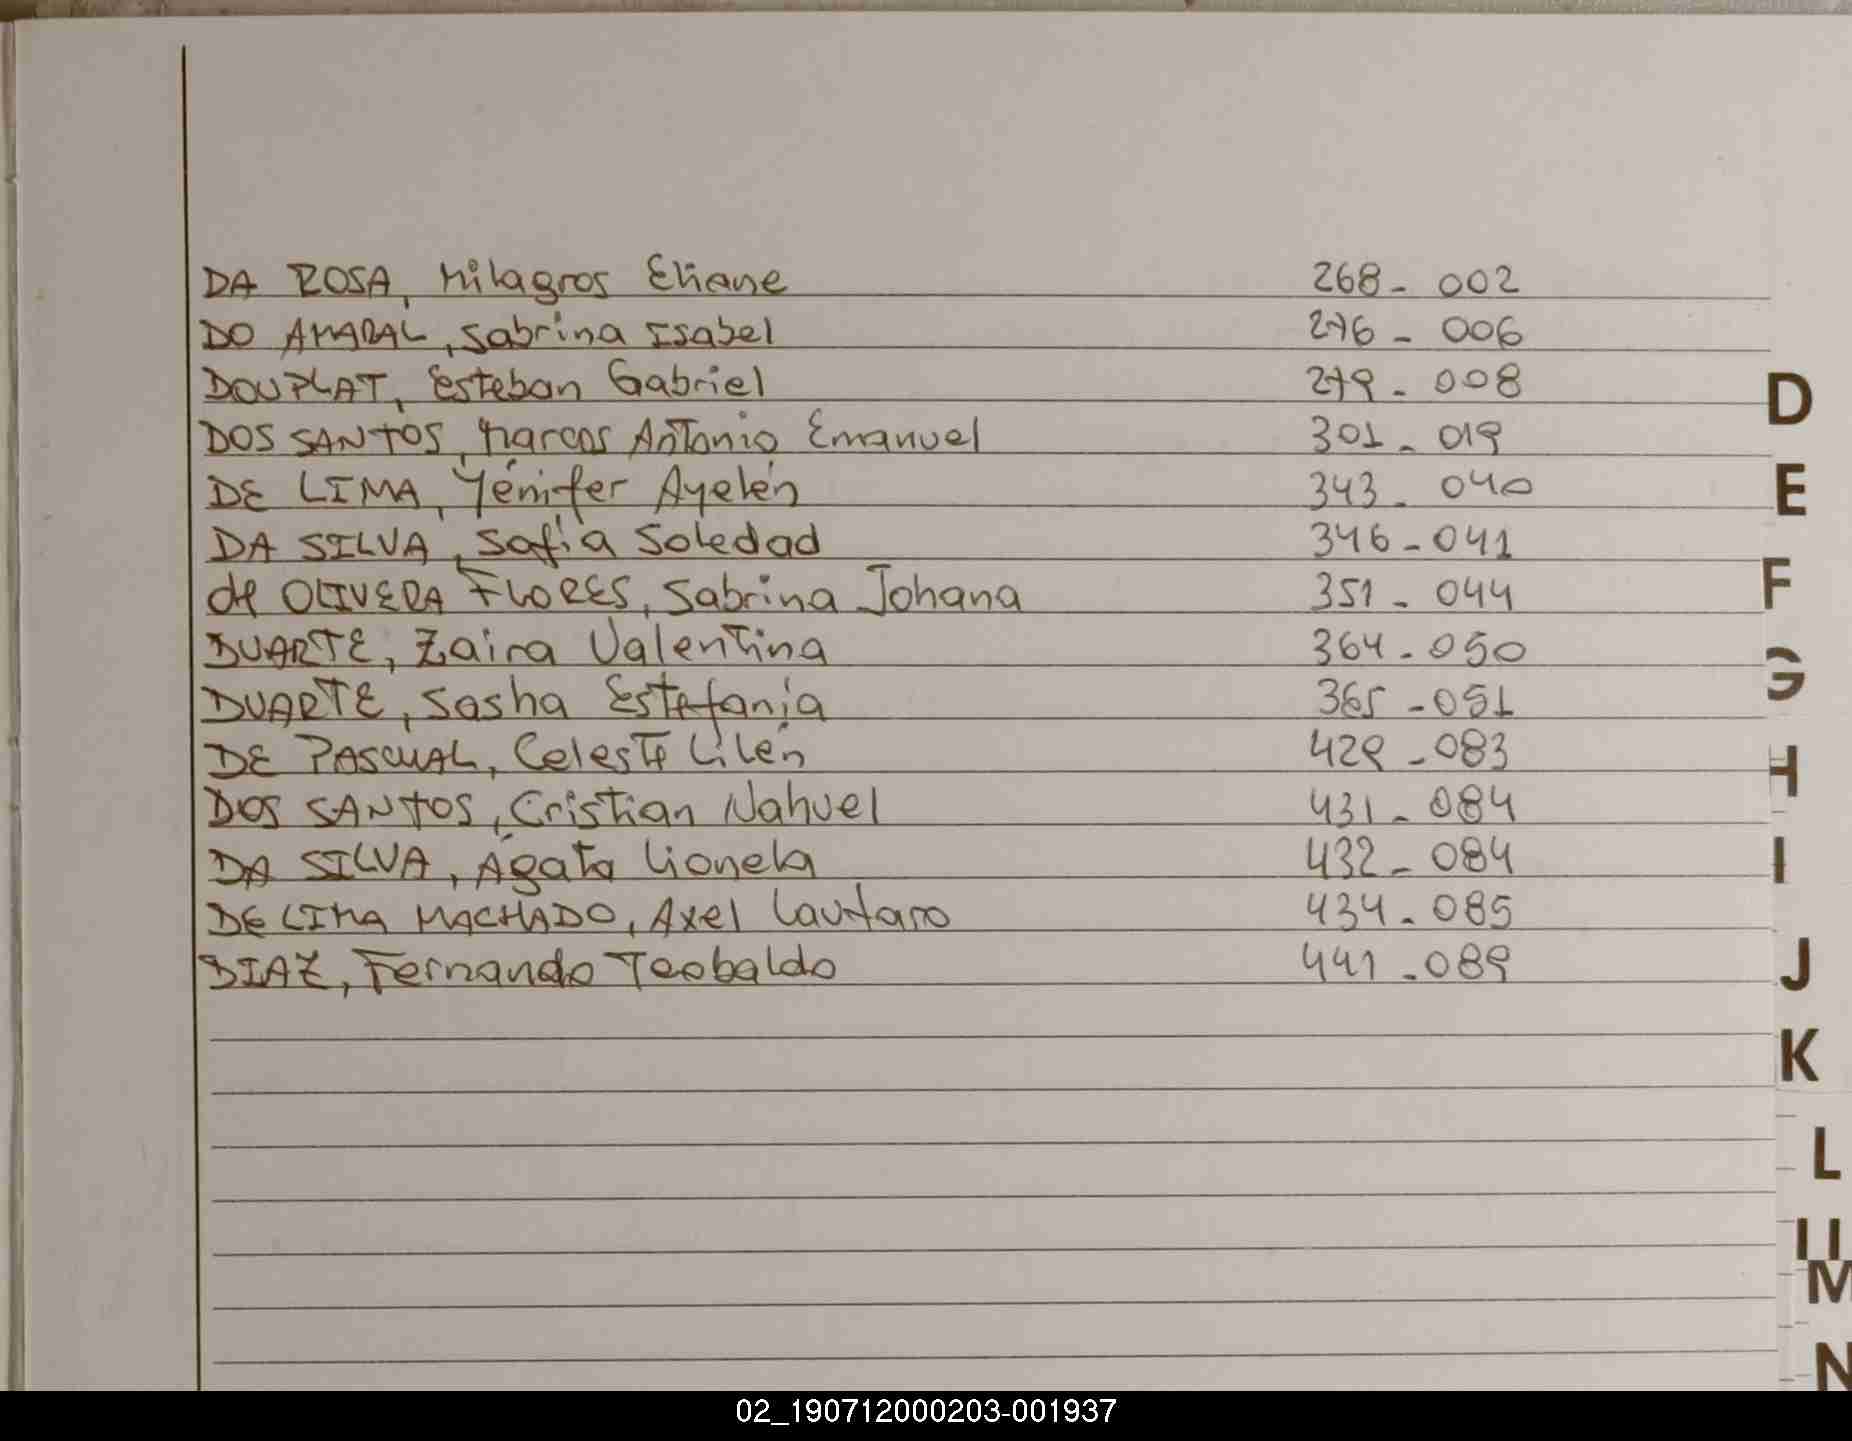 DA ROSA, Milagros Eliane 268 - 002
DO AMARAL, Sabrina Isabel 276 - 006
DOUPLAT, Esteban Gabriel 279 - 008
DOS SANTOS, Marcos Antonio Emanuel 301 - 019
DE LIMA, Yénifer Ayelén 343 - 040
DA SILVA, Sofía Soledad 346 - 041
de OLIVERA FLORES, Sabrina Johana 351 - 044
DUARTE, Zaira Valentina 364 - 050
DUARTE, Sasha Estefanía 365 - 051
DE PASCUAL, Celeste Lilén 429 - 083
DOS SANTOS, Cristian Nahuel 431 - 084
DA SILVA, Ágata Lionela 432 - 084
DE LIMA MACHADO, Axel Lautaro 434 - 085
DIAZ, Fernando Teobaldo 441 - 089
D
E
F
G
H
I
J
K
L
LL
M
N
02_190712000203-001937